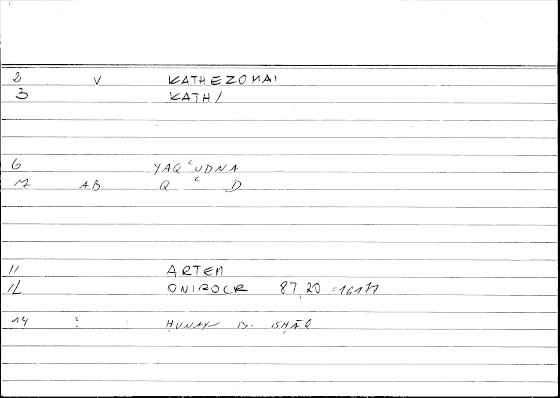 2 V KATHEZOMAI
3 KATH/
6 YAQʿUDNA
17 AB Q ʿ D
11 ARTEM
12 ONIROCR 87,20 =16177
14 ? ḤUNAYN B. ISḤĀQ